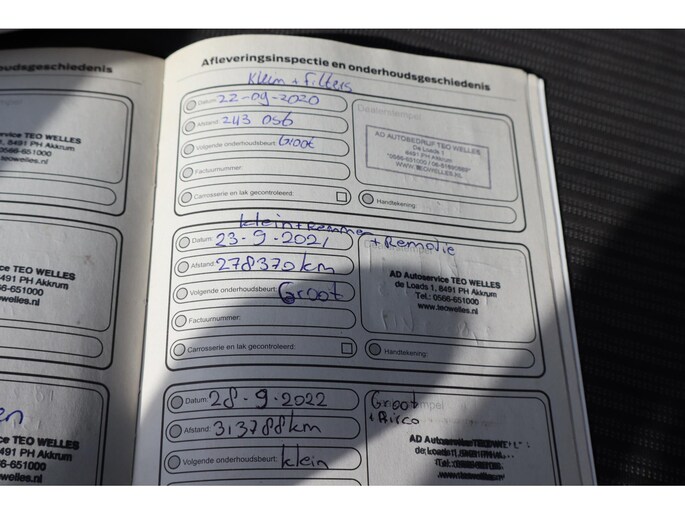 oudsgeschiedenis
ervice TEO WELLES
1, 8491 PH Akkrum
0566-651000
teowelles.nl
ce TEO WELLES
8491 PH Akkrum
66-651000
welles.nl
en
ice TEO WELLES
8491 PH Akkrum
566-651000
welles.nl
Afleveringsinspectie en onderhoudsgeschiedenis
Klein + Filters
Datum: 22-09-2020
Dealerstempel
Afstand: 243 056
AD AUTOBEDRIJF TEO WELLES
De Loads 1
8491 PH Akkrum
Volgende onderhoudsbeurt: Groot
Factuurnummer:
Carrosserie en lak gecontroleerd:
Handtekening:
klein + Remmen
+ Remolie
Datum: 23-9-2021
Afstand: 278370 km
AD Autoservice TEO WELLES
de Loads 1, 8491 PH Akkrum
Tel.: 0566-651000
www.teowelles.nl
Volgende onderhoudsbeurt: Groot
Factuurnummer:
Carrosserie en lak gecontroleerd:
Handtekening:
Datum: 28-9-2022
Groot
+ Airco
Afstand: 313788 km
AD Autoservice TEO WELLES
Volgende onderhoudsbeurt: klein